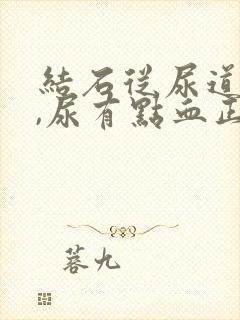 結石從尿道
,尿有點血正
蓉九